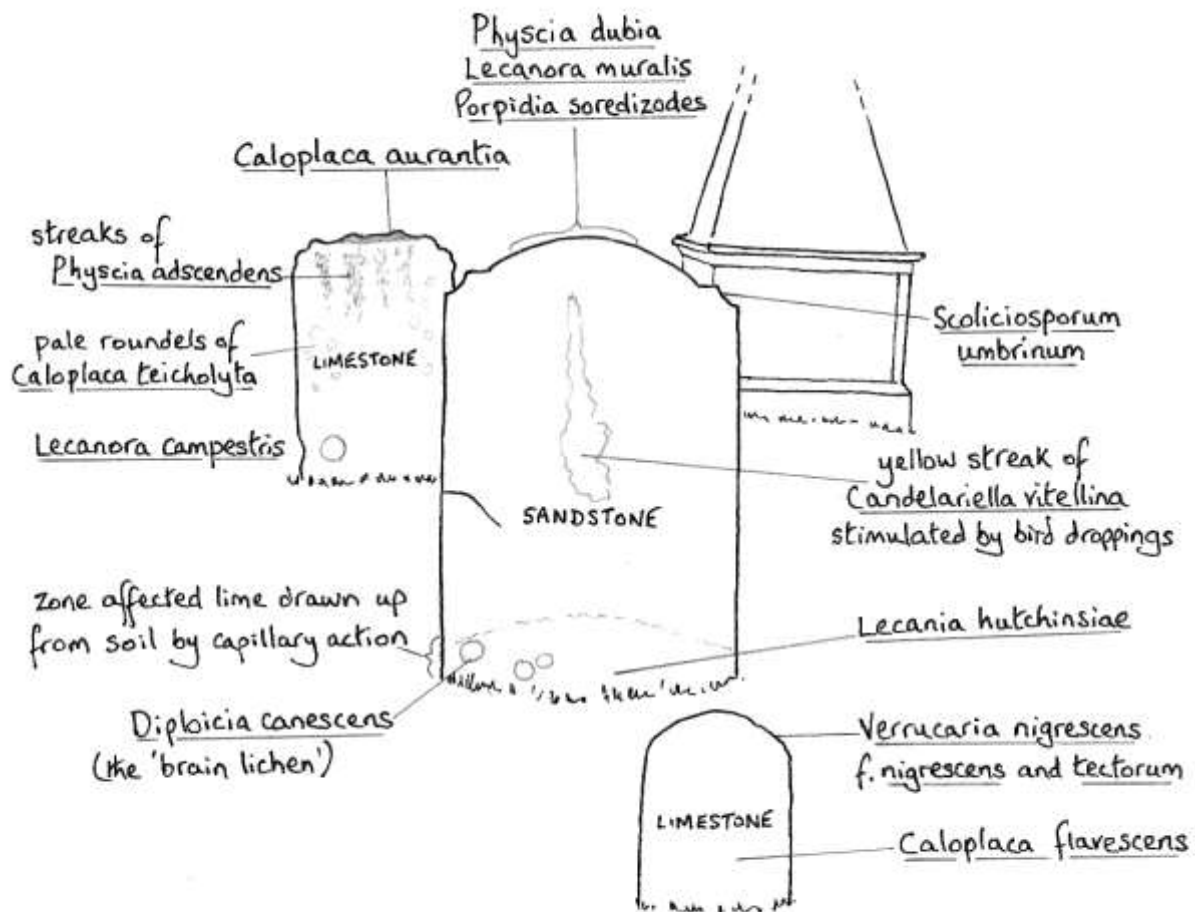 Physcia dubia
Lecanora muralis
Porpidia soredizodes
Caloplaca aurantia
streaks of
Physcia adscendens
pale roundels of
Caloplaca teicholyta
LIMESTONE
Lecanora campestris
Scoliciosporum
umbrinum
yellow streak of
Candelariella vitellina
stimulated by bird droppings
SANDSTONE
zone affected lime drawn up
from soil by capillary action
Lecania hutchinsiae
Diploicia canescens
(the 'brain lichen')
Verrucaria nigrescens
f. nigrescens and tectorum
LIMESTONE
Caloplaca flavescens